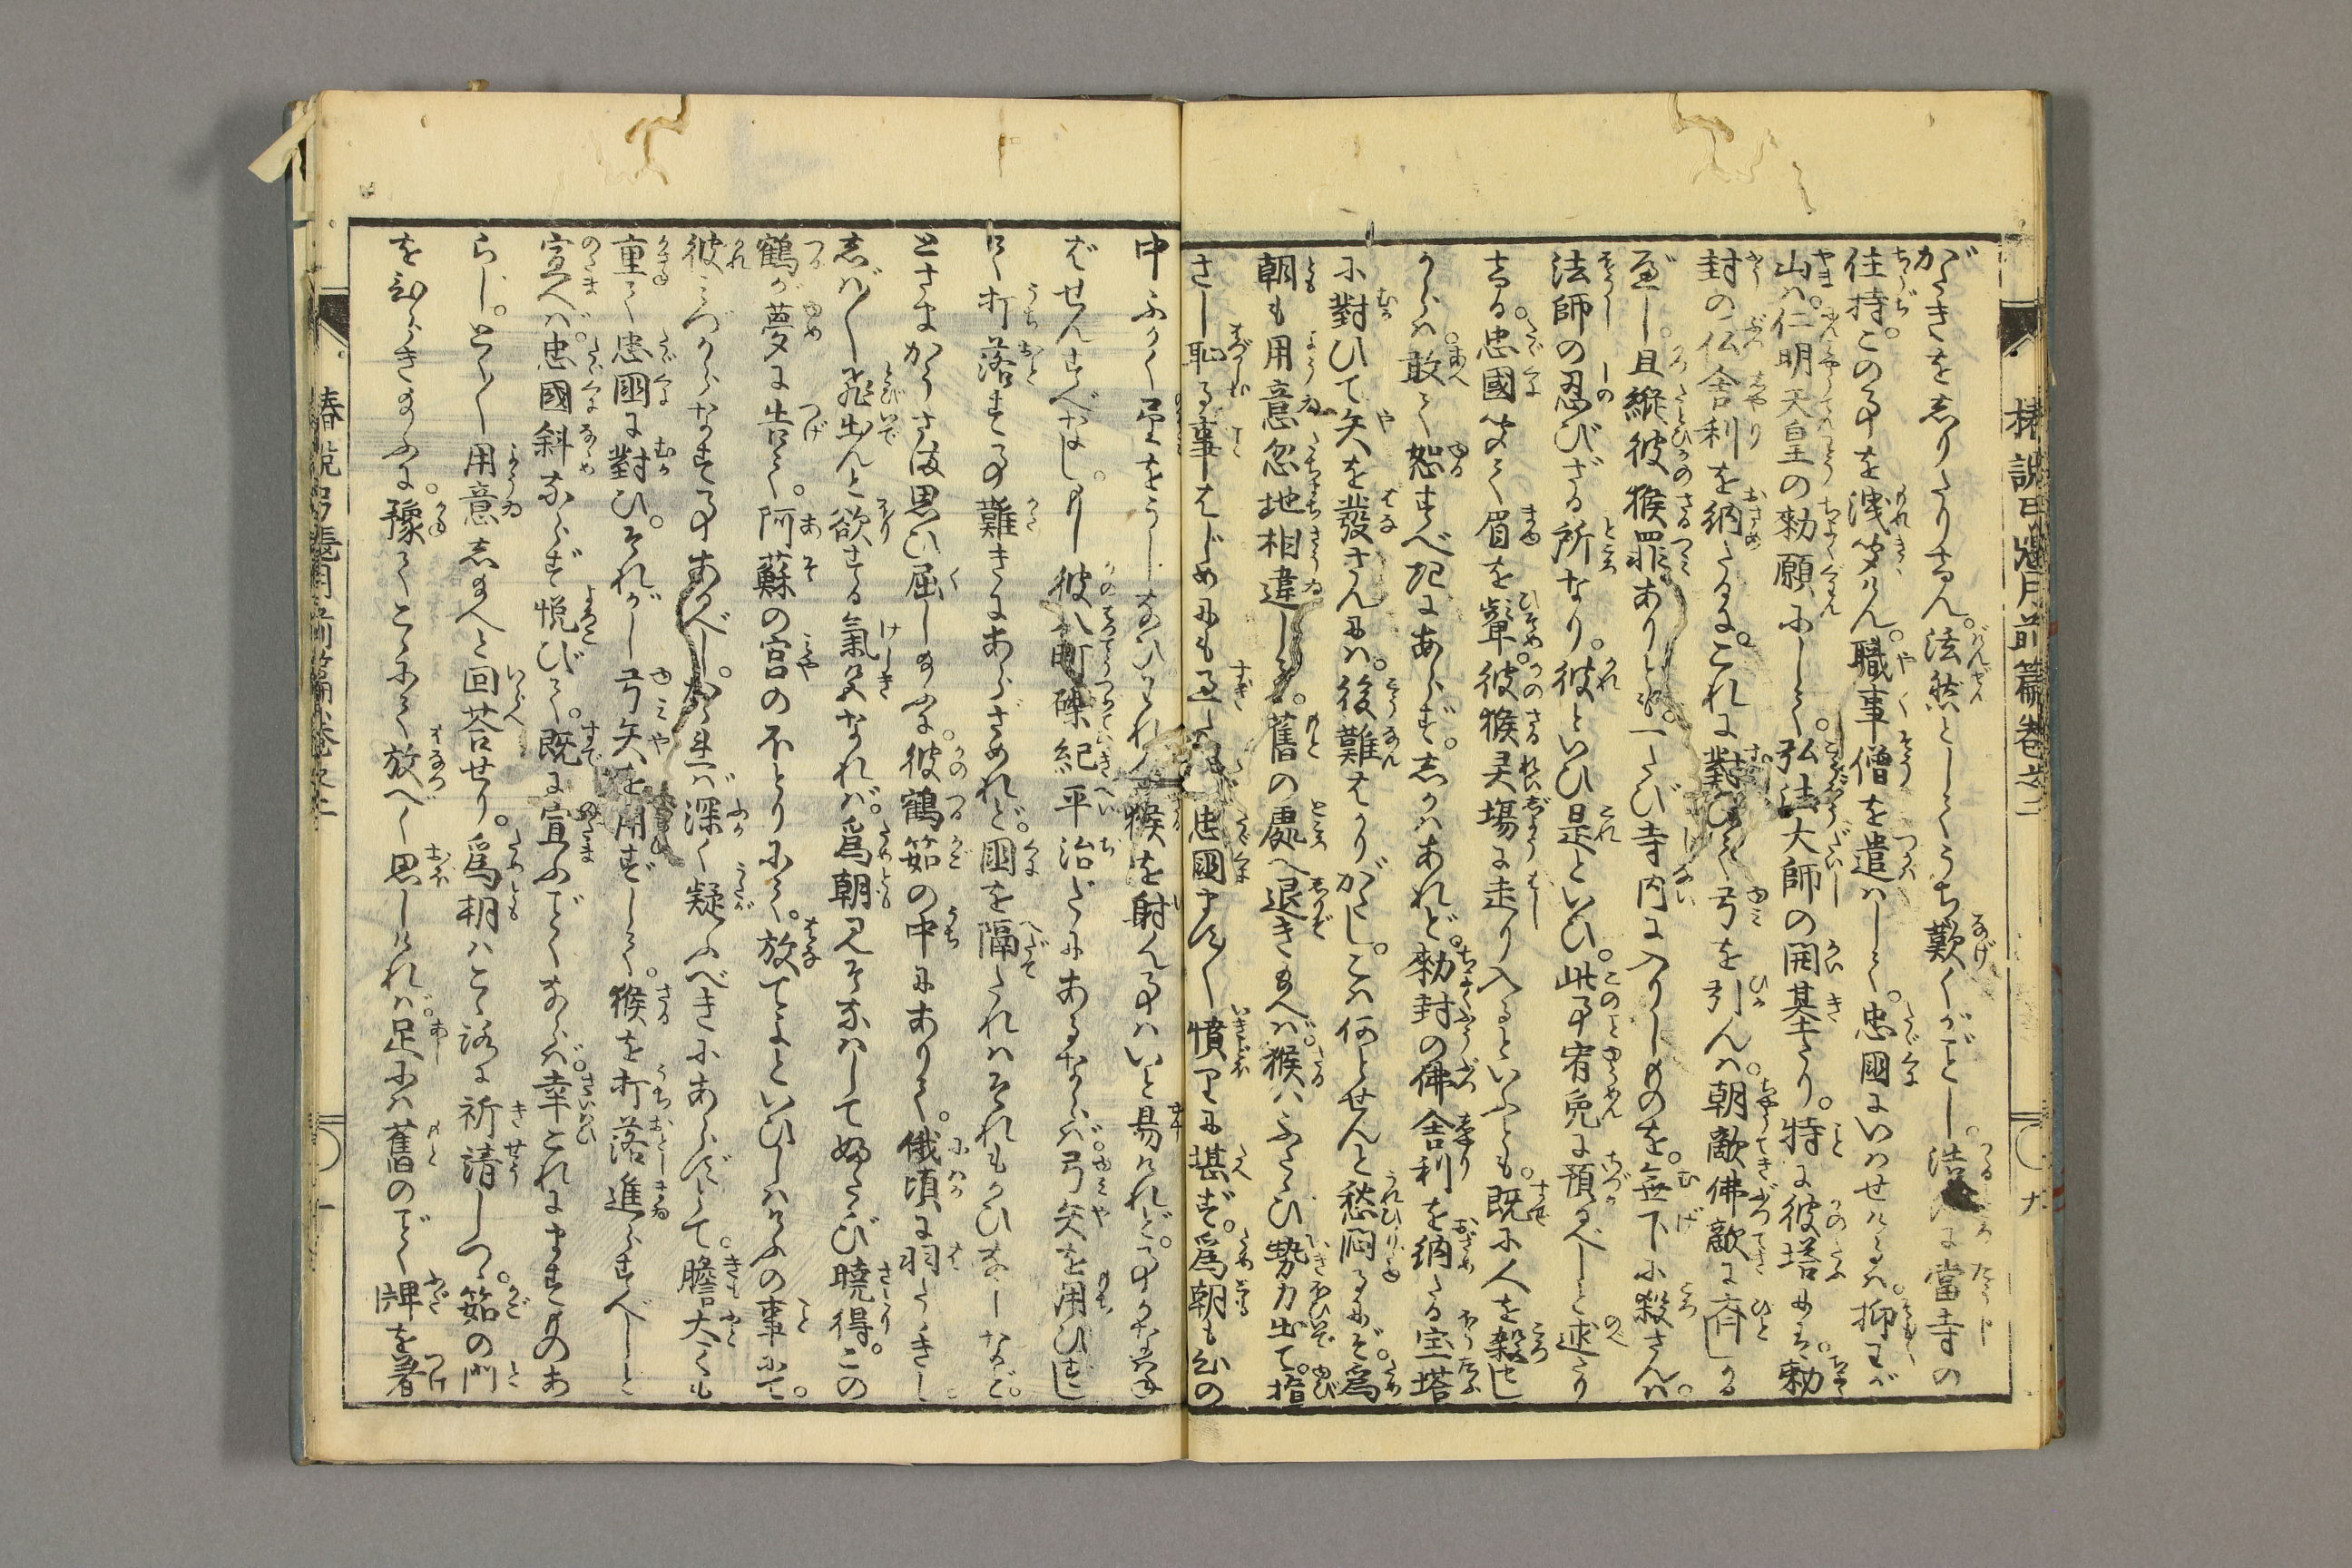 椿説弓張月前篇巻之二
がたきをしりたりけん。法然としてうち歎くがごとし。浩処に當寺の
住持。この事を洩聞けん。職事僧を遣はして。忠國にいはせけるは。抑わが
山は。仁明天皇の勅願にして。弘法大師の開基たり。特に彼塔には。勅
封の仏舎利を納たるに。これに對ひて弓を引んは。朝敵佛敵に齊しかる
べし。且縦彼猴罪ありとも。一たび寺内に入りしものを。無下に殺さんは。
法師の忍びざる所なり。彼といひ是といひ。此事宥免に預るべしと述たり
ける。忠國聞て眉を顰。彼猴灵塲に走り入るといふとも。既に人を殺せし
からは。敢て恕すべきにあらず。しかはあれど。勅封の佛舎利を納たる宝塔
に對ひて矢を發さんには。後難はかりがたし。こは何とせんと愁悶るにぞ。為
朝も用意忽地相違しつ。舊の處へ退き給へば。猴はふたゝび勢力出て。指
さし恥る事はじめにも過たり。忠國ます〳〵憤りに堪ず。為朝も心の
中ふかく
ばせんすべなし。もし彼八町礫紀平治だにあるならば。弓矢を用ひずし
て打落す事難きにあらざめれど。國を隔たればそれもかひなしなど。
とさまかうさま思ひ屈し給ふに。彼鶴籠の中にありて。俄頃に羽たゝきし
しば〳〵飛出んと欲する氣色なれば。為朝見そなはしてふたゝび暁得。この
鶴が夢に告て。阿蘇の宮の不とりにて。放てよといひしはけふの事にて。
彼みづからなす事あるべし。かゝれば深く疑ふべきにあらずとて。膽太くも
重て忠國に對ひ。それがし弓矢を用ずして。猴を打落進らすべしと
宣へば。忠國斜ならず悦びて。既に宣ふごとくならば。幸これにますものあ
らじ。とく〳〵用意し給へと回荅せり。為朝はこゝろに祈請しつゝ。籠の門
をひらき給ふに。豫てこゝにて放べく思しければ。足には舊のごとく牌を著
椿説弓張月前篇巻之二